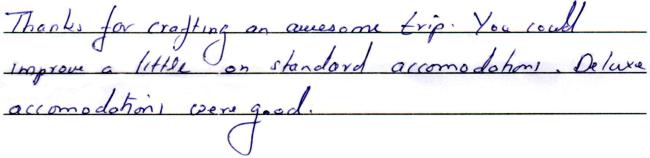 Thanks for crafting an awesome trip. You could
improve a little on standard accomodations. Deluxe
accomodations were good.